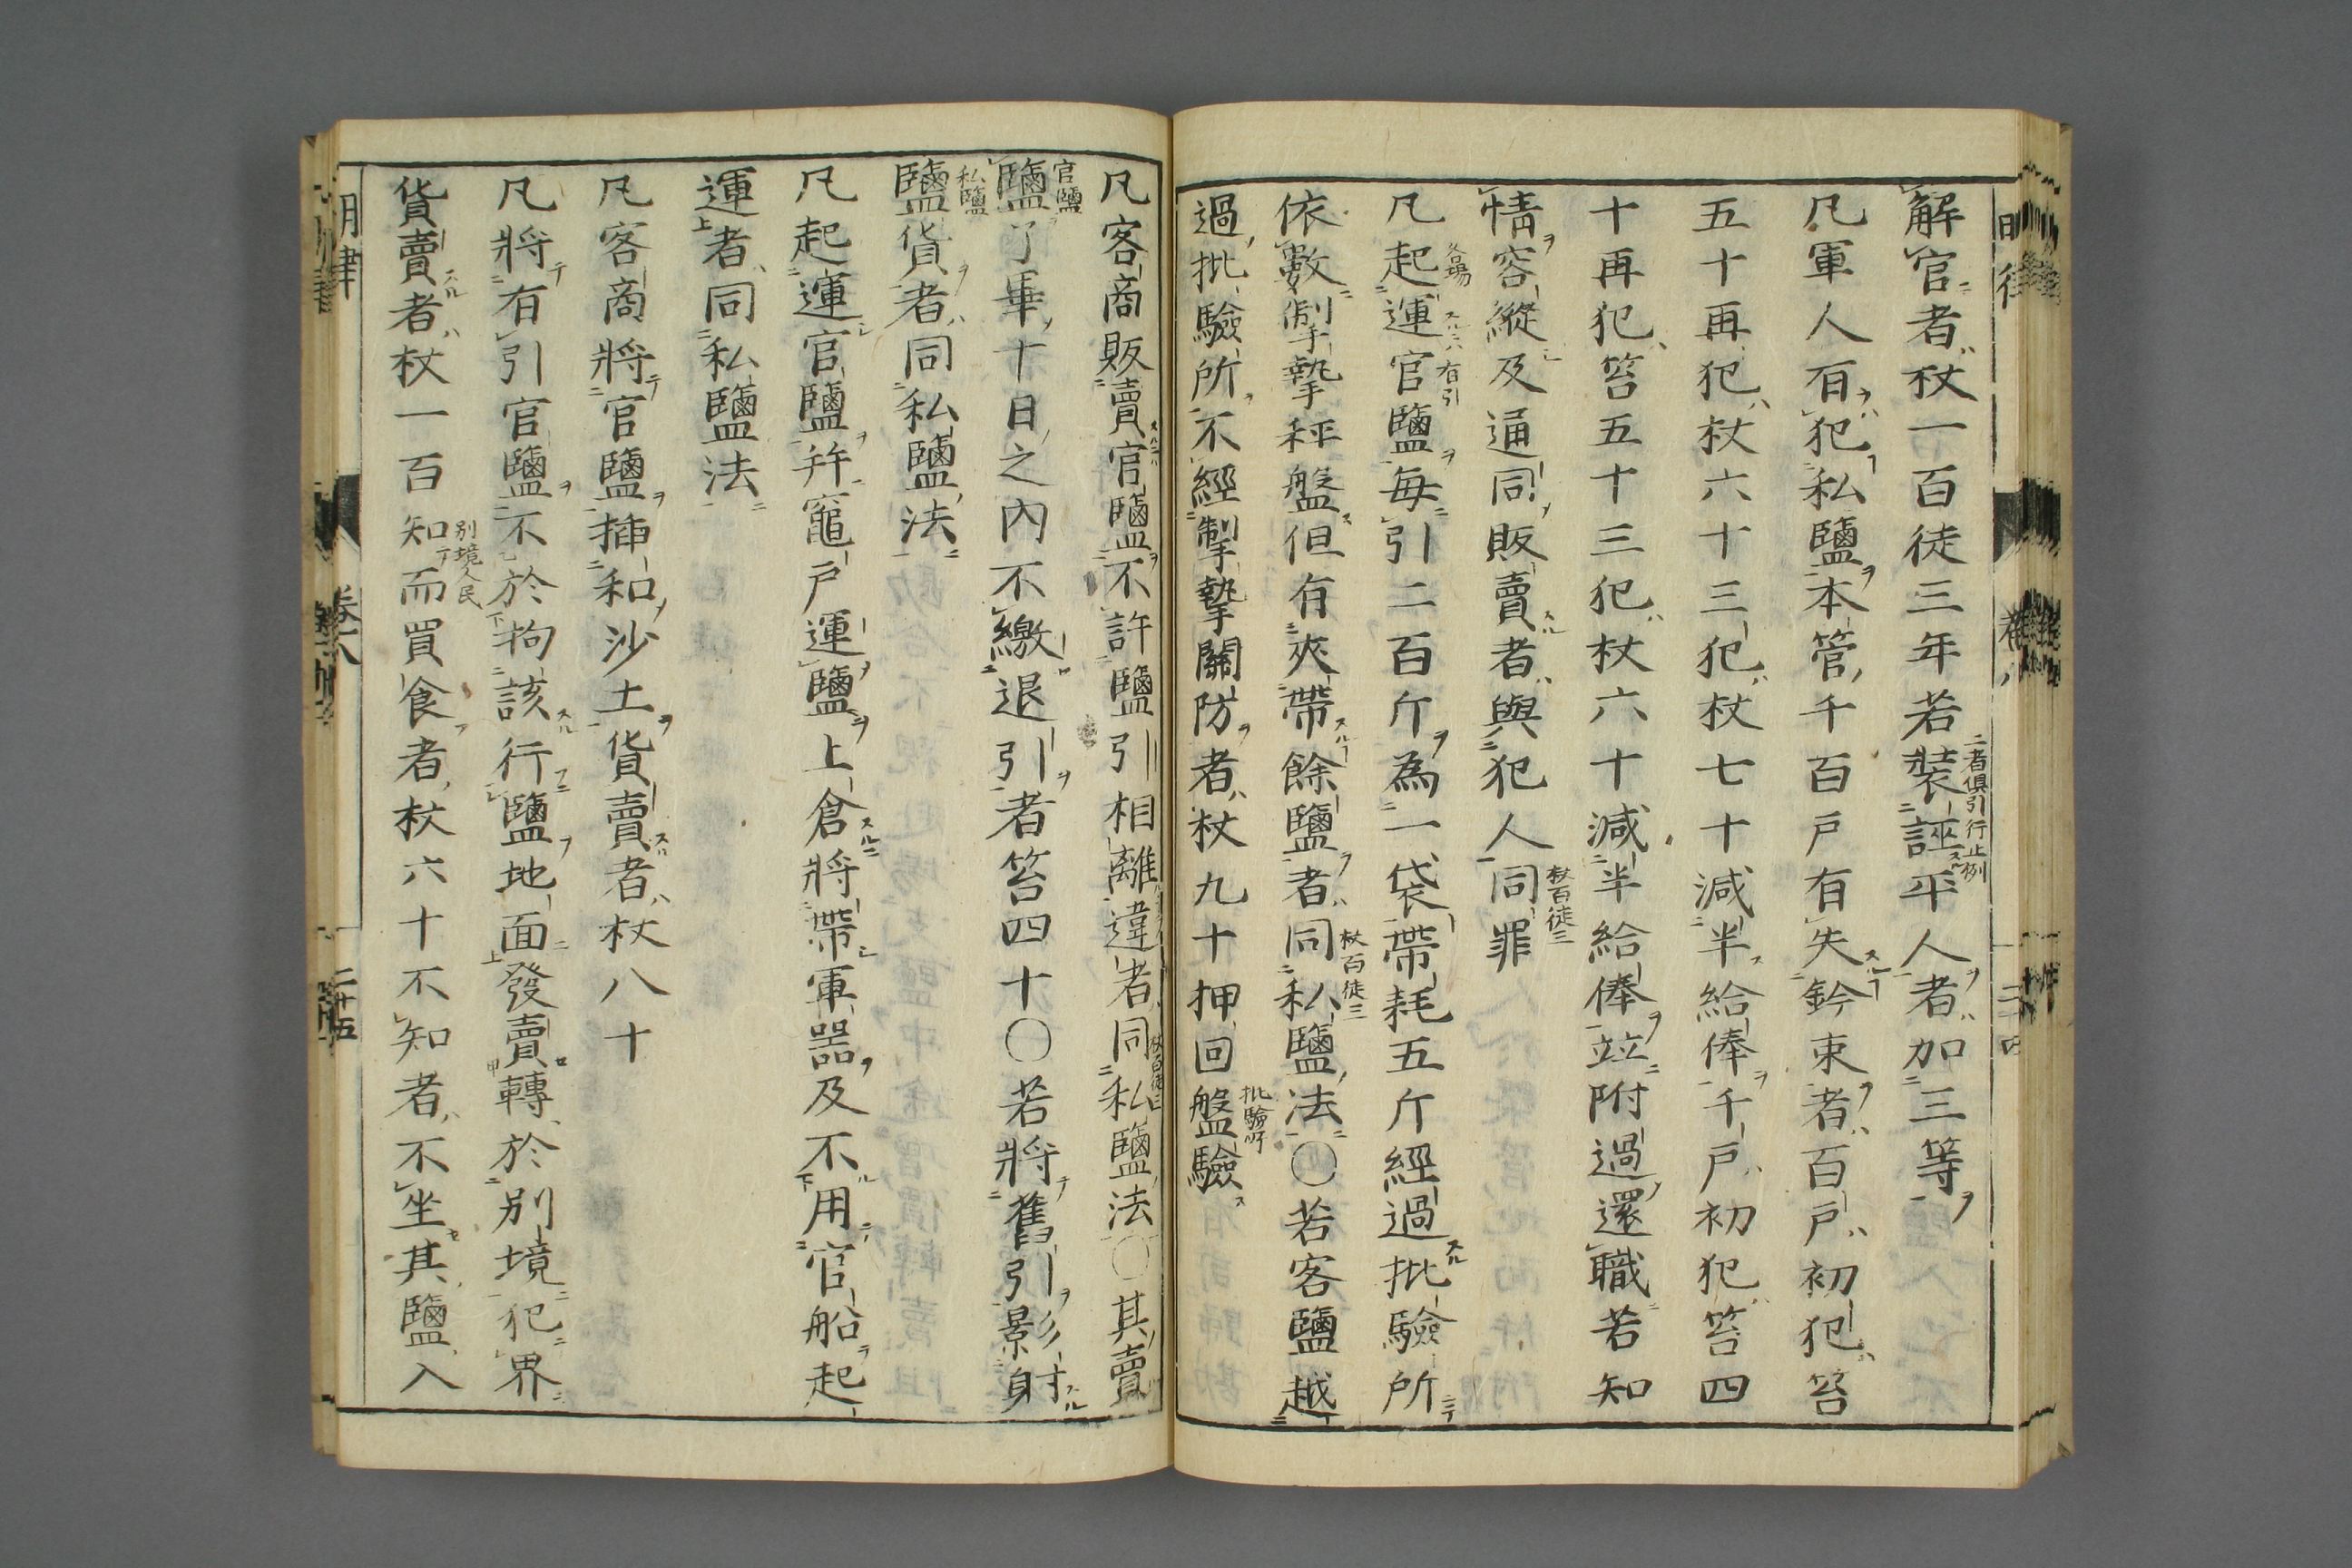 解官者杖一百徒三年若裝誣平人者加三等
二者俱引行止例
凡軍人有犯私鹽本管千百戶有失鈐束者百戶初犯笞
五十再犯杖六十三犯杖七十減半給俸千戶初犯笞四
十再犯笞五十三犯杖六十減半給俸竝附過還職若知
情容縱及通同販賣者與犯人同罪
杖百徒三
凡起運官鹽每引二百斤為一袋帶耗五斤經過批驗所
各場
有引
依數掣摯秤盤但有夾帶餘鹽者同私鹽法○若客鹽越
杖百徒三
過批驗所不經掣摯關防者杖九十押回盤驗
批驗所
凡客商販賣官鹽不許鹽引相離違者同私鹽法○其賣
杖百徒三
鹽了畢十日之內不繳退引者笞四十○若將舊引影射
官鹽
鹽貨者同私鹽法
私鹽
凡起運官鹽并竈戶運鹽上倉將帶軍器及不用官船起
運者同私鹽法
凡客商將官鹽插和沙土貨賣者杖八十
凡將有引官鹽不於拘該行鹽地面發賣轉於別境犯界
貨賣者杖一百知而買食者杖六十不知者不坐其鹽入
別境人民
明律 卷八 二十五